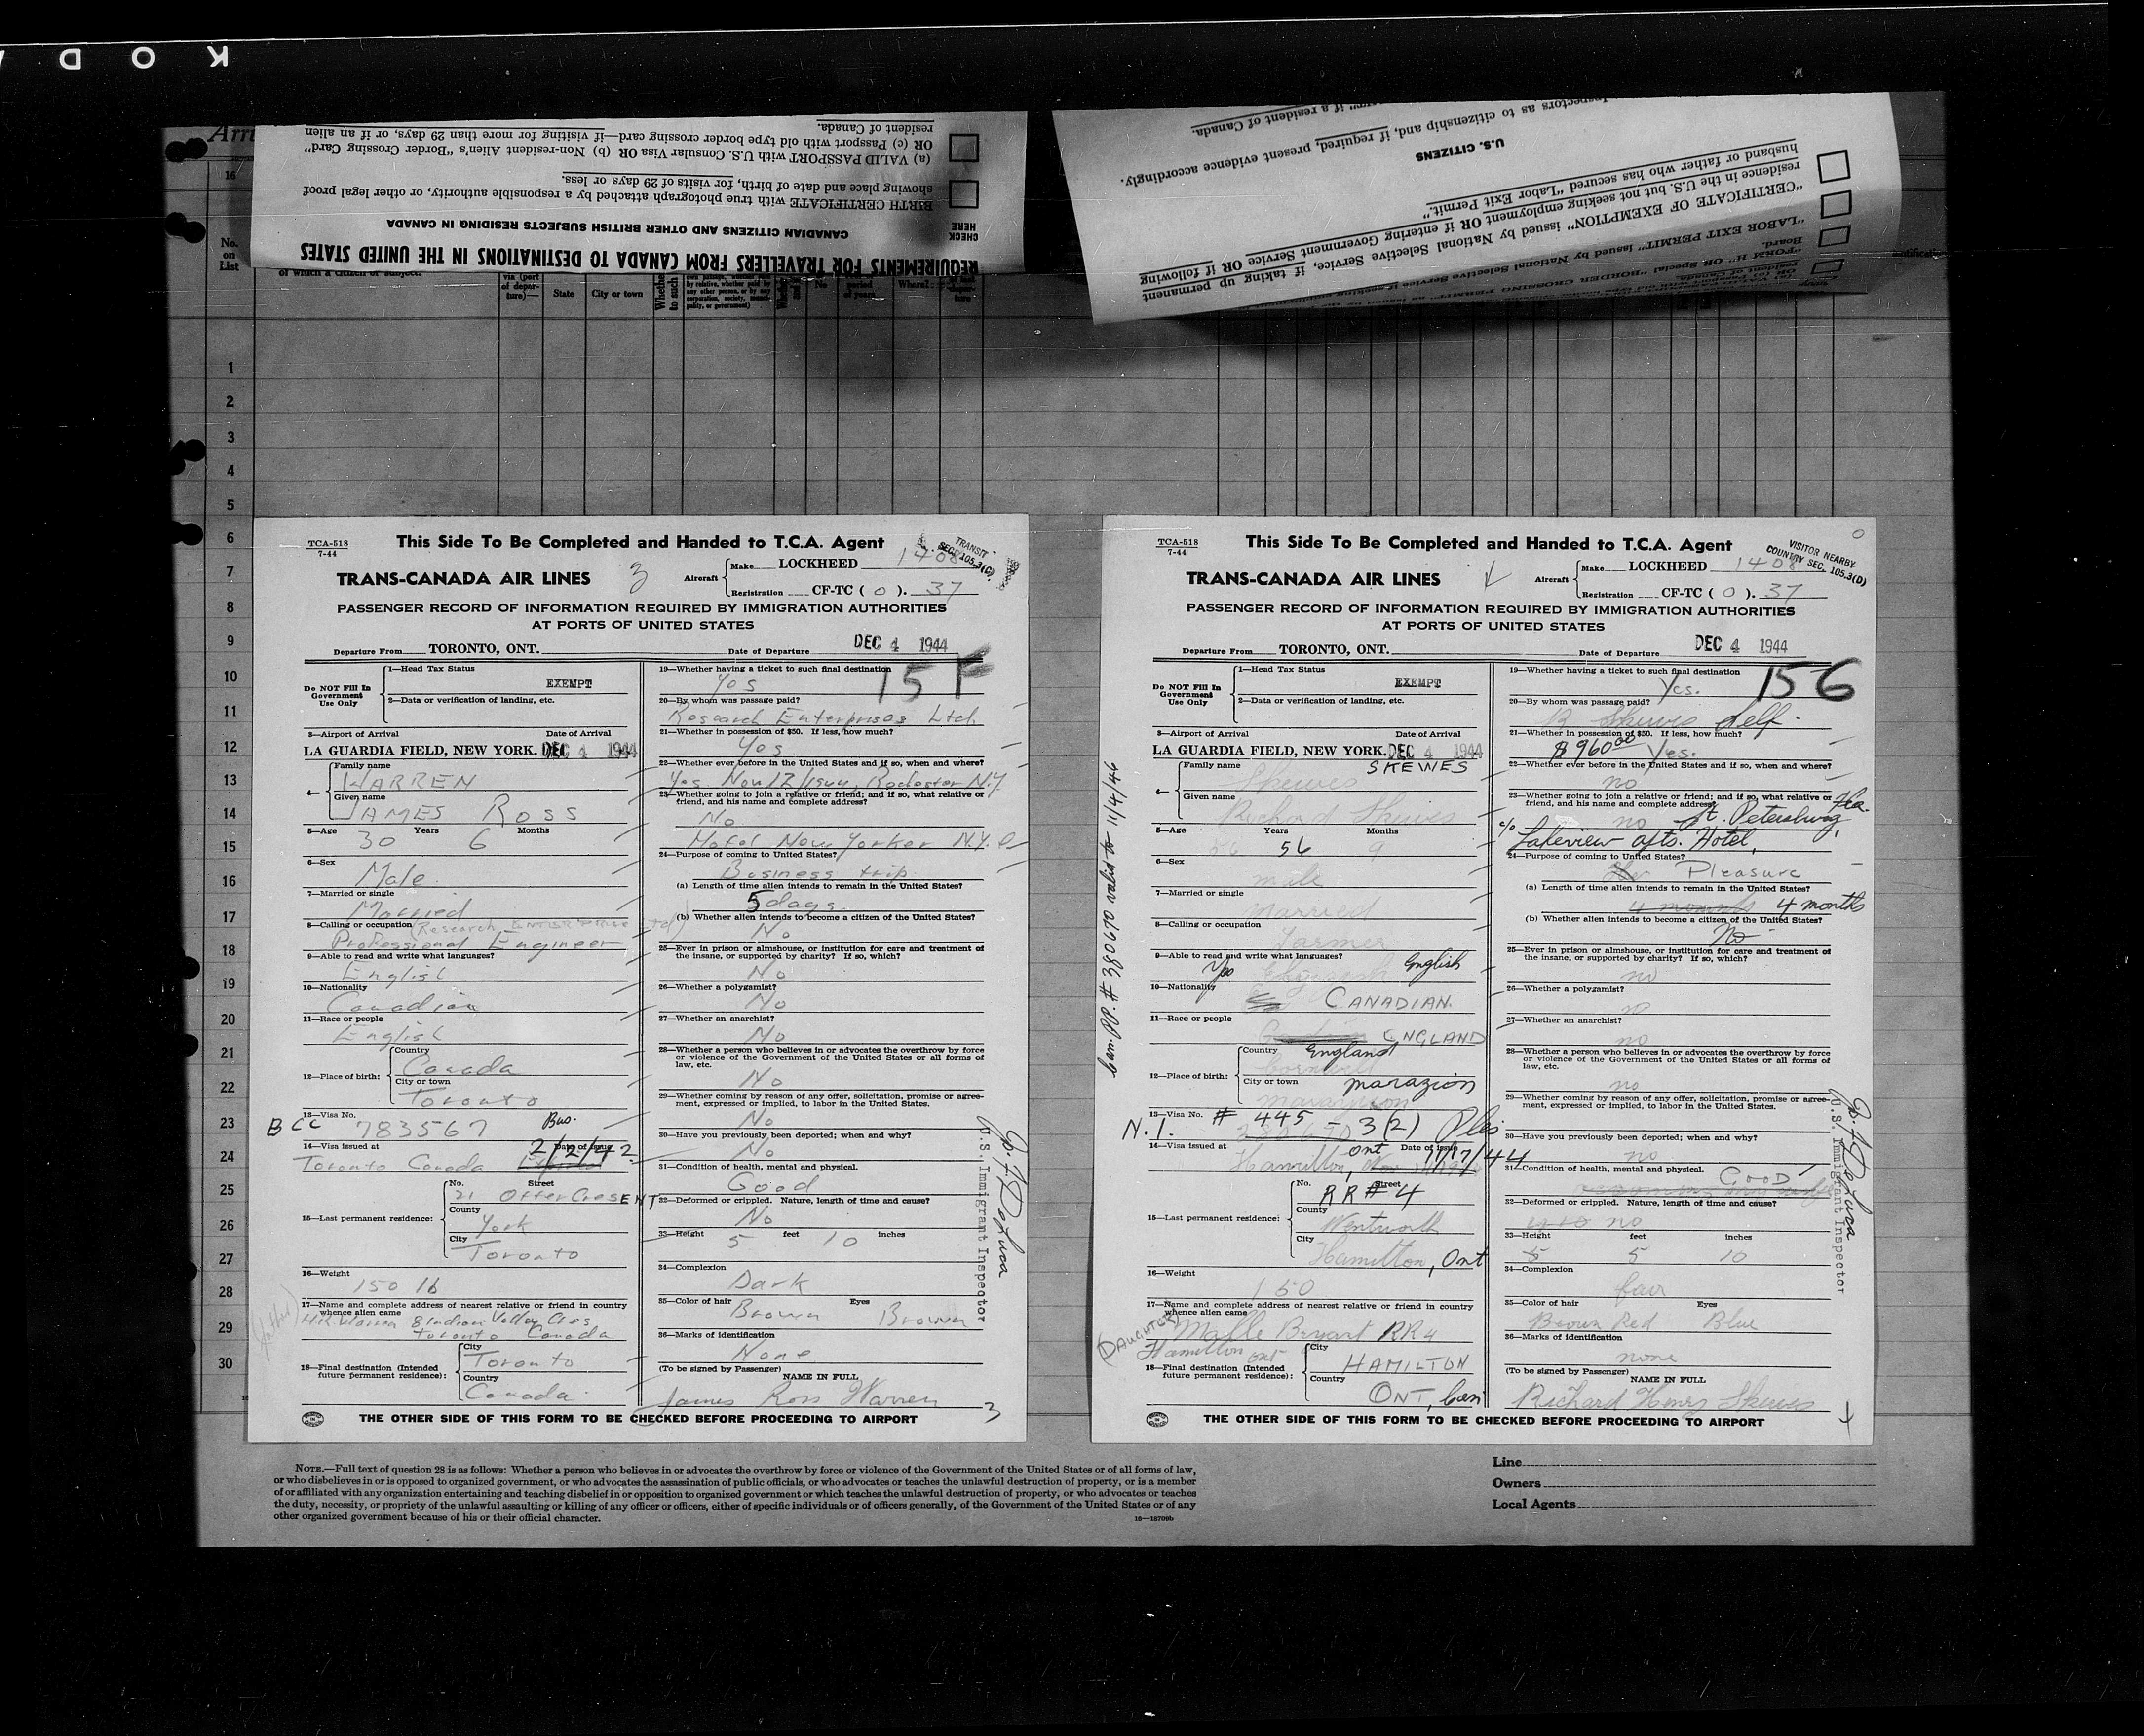 K O D A
Arri
REQUIREMENTS FOR TRAVELLERS FROM CANADA TO DESTINATIONS IN THE UNITED STATES
CHECK HERE
CANADIAN CITIZENS AND OTHER BRITISH SUBJECTS RESIDING IN CANADA
BIRTH CERTIFICATE with true photograph attached by a responsible authority, or other legal proof
showing place and date of birth, for visits of 29 days or less.
(a) VALID PASSPORT with U.S. Consular Visa OR (b) Non-resident Alien's "Border Crossing Card"
OR (c) Passport with old type border crossing card—if visiting for more than 29 days, or if an alien
resident of Canada.
"LABOR EXIT PERMIT" issued by National Selective Service
"CERTIFICATE OF EXEMPTION" issued by National Selective Service, if taking up permanent
residence in the U.S. but not seeking employment OR if entering Government Service OR if following
husband or father who has secured "Labor Exit Permit."
U.S. CITIZENS
Inspectors as to citizenship and, if required, present evidence accordingly.
if a resident of Canada.
16
No. on List
of which a citizen or subject.
via (port of departure)—
State
City or town
1
2
3
4
5
6
7
8
9
10
11
12
13
14
15
16
17
18
19
20
21
22
23
24
25
26
27
28
29
30
TCA-518
7-44
This Side To Be Completed and Handed to T.C.A. Agent
TRANSIT
SEC. 105.3(C)
TRANS-CANADA AIR LINES 3
Aircraft Make LOCKHEED 1408
Registration CF-TC ( O ). 37
PASSENGER RECORD OF INFORMATION REQUIRED BY IMMIGRATION AUTHORITIES
AT PORTS OF UNITED STATES
Departure From TORONTO, ONT. Date of Departure DEC 4 1944
Do NOT Fill In Government Use Only
1—Head Tax Status
EXEMPT
2—Data or verification of landing, etc.
3—Airport of Arrival Date of Arrival
LA GUARDIA FIELD, NEW YORK. DEC 4 1944
4— Family name
WARREN
Given name
JAMES ROSS
5—Age Years Months
30 6
6—Sex
Male
7—Married or single
Married
8—Calling or occupation (Research Enterprise Ltd)
Professional Engineer
9—Able to read and write what languages?
English
10—Nationality
Canadian
11—Race or people
English
12—Place of birth: Country
Canada
City or town
Toronto
13—Visa No.
BCC 783567
14—Visa issued at Date of issue
Toronto Canada 2/2/42
15—Last permanent residence: No. Street
21 Otter CresENT
County
York
City
Toronto
16—Weight
150 lb
17—Name and complete address of nearest relative or friend in country
whence alien came
(father)
H.R. Warren 8 Indian Valley Cres
Toronto Canada
18—Final destination (Intended future permanent residence): City
Toronto
Country
Canada
19—Whether having a ticket to such final destination
Yes
15F
20—By whom was passage paid?
Research Enterprises Ltd.
21—Whether in possession of $50. If less, how much?
Yes
22—Whether ever before in the United States and if so, when and where?
Yes Nov 12/1944, Rochester N.Y.
23—Whether going to join a relative or friend; and if so, what relative or
friend, and his name and complete address?
No
Hotel New Yorker N.Y.C
24—Purpose of coming to United States?
Business trip
(a) Length of time alien intends to remain in the United States?
5 days
(b) Whether alien intends to become a citizen of the United States?
No
25—Ever in prison or almshouse, or institution for care and treatment of
the insane, or supported by charity? If so, which?
No
26—Whether a polygamist?
No
27—Whether an anarchist?
No
28—Whether a person who believes in or advocates the overthrow by force
or violence of the Government of the United States or all forms of
law, etc.
No
29—Whether coming by reason of any offer, solicitation, promise or agreement, expressed or implied, to labor in the United States.
No
30—Have you previously been deported; when and why?
No
31—Condition of health, mental and physical.
Good
32—Deformed or crippled. Nature, length of time and cause?
No
33—Height 5 feet 10 inches
34—Complexion
Dark
35—Color of hair Eyes
Brown Brown
36—Marks of identification
None
(To be signed by Passenger)
NAME IN FULL
James Ross Warren 3
U.S. Immigrant Inspector
THE OTHER SIDE OF THIS FORM TO BE CHECKED BEFORE PROCEEDING TO AIRPORT
TCA-518
7-44
This Side To Be Completed and Handed to T.C.A. Agent
VISITOR NEARBY
COUNTRY SEC. 105.3(D)
TRANS-CANADA AIR LINES
Aircraft Make LOCKHEED 1408
Registration CF-TC ( O ). 37
PASSENGER RECORD OF INFORMATION REQUIRED BY IMMIGRATION AUTHORITIES
AT PORTS OF UNITED STATES
Departure From TORONTO, ONT. Date of Departure DEC 4 1944
Do NOT Fill In Government Use Only
1—Head Tax Status
EXEMPT
2—Data or verification of landing, etc.
3—Airport of Arrival Date of Arrival
LA GUARDIA FIELD, NEW YORK. DEC 4 1944
Can. PP. # 380670 valid to 11/4/46
4— Family name
Skewes SKEWES
Given name
Richard Skewes
5—Age Years Months
56 56 9
6—Sex
male
7—Married or single
Married
8—Calling or occupation
Farmer
9—Able to read and write what languages?
Yes English
10—Nationality
CANADIAN
11—Race or people
ENGLAND
12—Place of birth: Country
England
Cornwall
City or town
marazion
13—Visa No. # 445 - 3(2) Ples
N.I.
14—Visa issued at Date of issue
Hamilton, Ont 11/17/44
15—Last permanent residence: No. Street
RR # 4
County
Wentworth
City
Hamilton, Ont
16—Weight
150
17—Name and complete address of nearest relative or friend in country
whence alien came
(DAUGHTER)
Bryant RR4
Hamilton Ont
18—Final destination (Intended future permanent residence): City
HAMILTON
Country
ONT, Can
19—Whether having a ticket to such final destination
Yes.
156
20—By whom was passage paid?
R Skewes self.
21—Whether in possession of $50. If less, how much?
$960.00 Yes.
22—Whether ever before in the United States and if so, when and where?
no
23—Whether going to join a relative or friend; and if so, what relative or
friend, and his name and complete address?
no St. Petersburg, Fla.
c/o Lakeview apts. Hotel,
24—Purpose of coming to United States?
Pleasure
(a) Length of time alien intends to remain in the United States?
4 months 4 months
(b) Whether alien intends to become a citizen of the United States?
No
25—Ever in prison or almshouse, or institution for care and treatment of
the insane, or supported by charity? If so, which?
no
26—Whether a polygamist?
no
27—Whether an anarchist?
no
28—Whether a person who believes in or advocates the overthrow by force
or violence of the Government of the United States or all forms of
law, etc.
no
29—Whether coming by reason of any offer, solicitation, promise or agreement, expressed or implied, to labor in the United States.
30—Have you previously been deported; when and why?
no
31—Condition of health, mental and physical.
GOOD
32—Deformed or crippled. Nature, length of time and cause?
no
33—Height feet inches
5 5 10
34—Complexion
fair
35—Color of hair Eyes
Brown Red Blue
36—Marks of identification
none
(To be signed by Passenger)
NAME IN FULL
Richard Henry Skewes
U.S. Immigrant Inspector
THE OTHER SIDE OF THIS FORM TO BE CHECKED BEFORE PROCEEDING TO AIRPORT
NOTE.—Full text of question 28 is as follows: Whether a person who believes in or advocates the overthrow by force or violence of the Government of the United States or of all forms of law,
or who disbelieves in or is opposed to organized government, or who advocates the assassination of public officials, or who advocates or teaches the unlawful destruction of property, or is a member
of or affiliated with any organization entertaining and teaching disbelief in or opposition to organized government or which teaches the unlawful destruction of property, or who advocates or teaches
the duty, necessity, or propriety of the unlawful assaulting or killing of any officer or officers, either of specific individuals or of officers generally, of the Government of the United States or of any
other organized government because of his or their official character.
16—18709b
Line
Owners
Local Agents